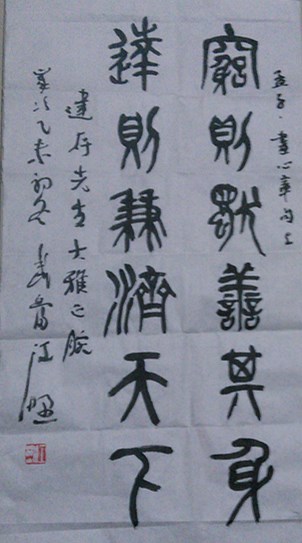 孟子·盡心章句上
窮則獨善其身
達則兼濟天下
建存先生大雅正腕
歲次乙未初冬